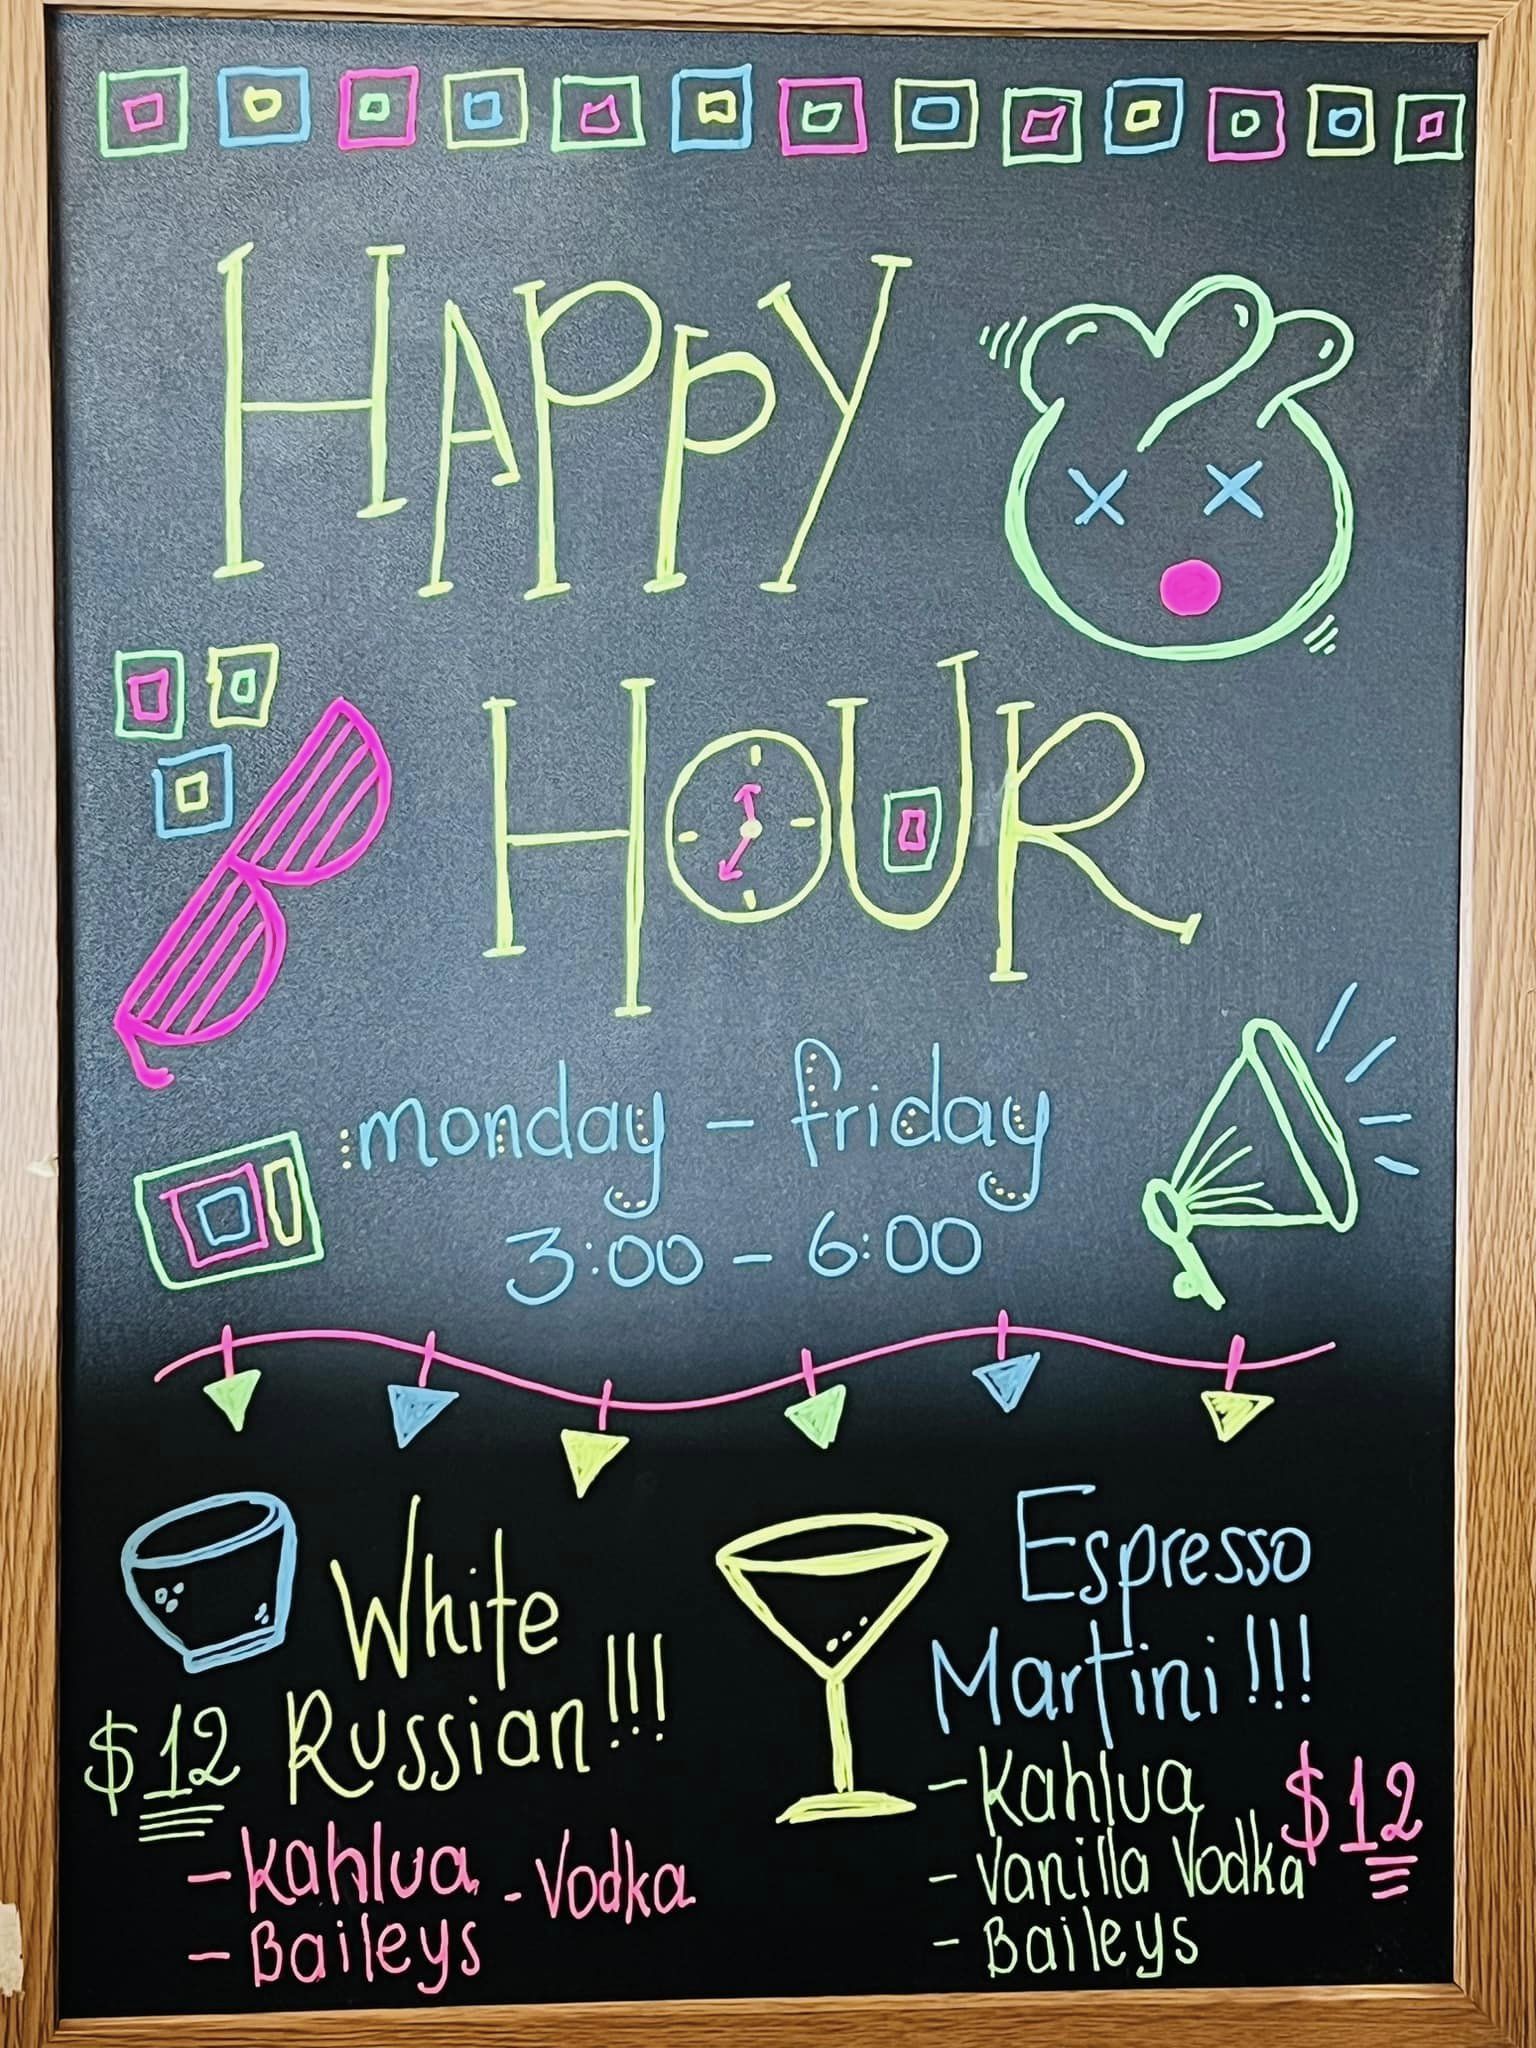 HAPPY
HOUR
monday - friday
3:00 - 6:00
White
Russian!!!
$12
- Kahlua - Vodka
- Baileys
Espresso
Martini!!!
- Kahlua $12
- Vanilla Vodka
- Baileys